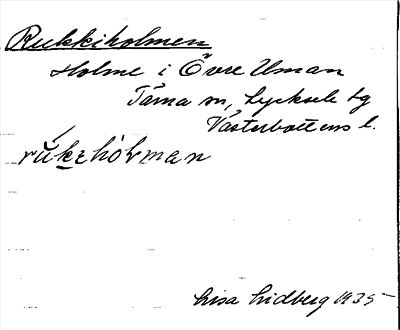 Rukkiholmen
Holme i Övre Uman
Tärna sn, Lycksele tg
Västerbottens l.
Lisa Lidberg 1935